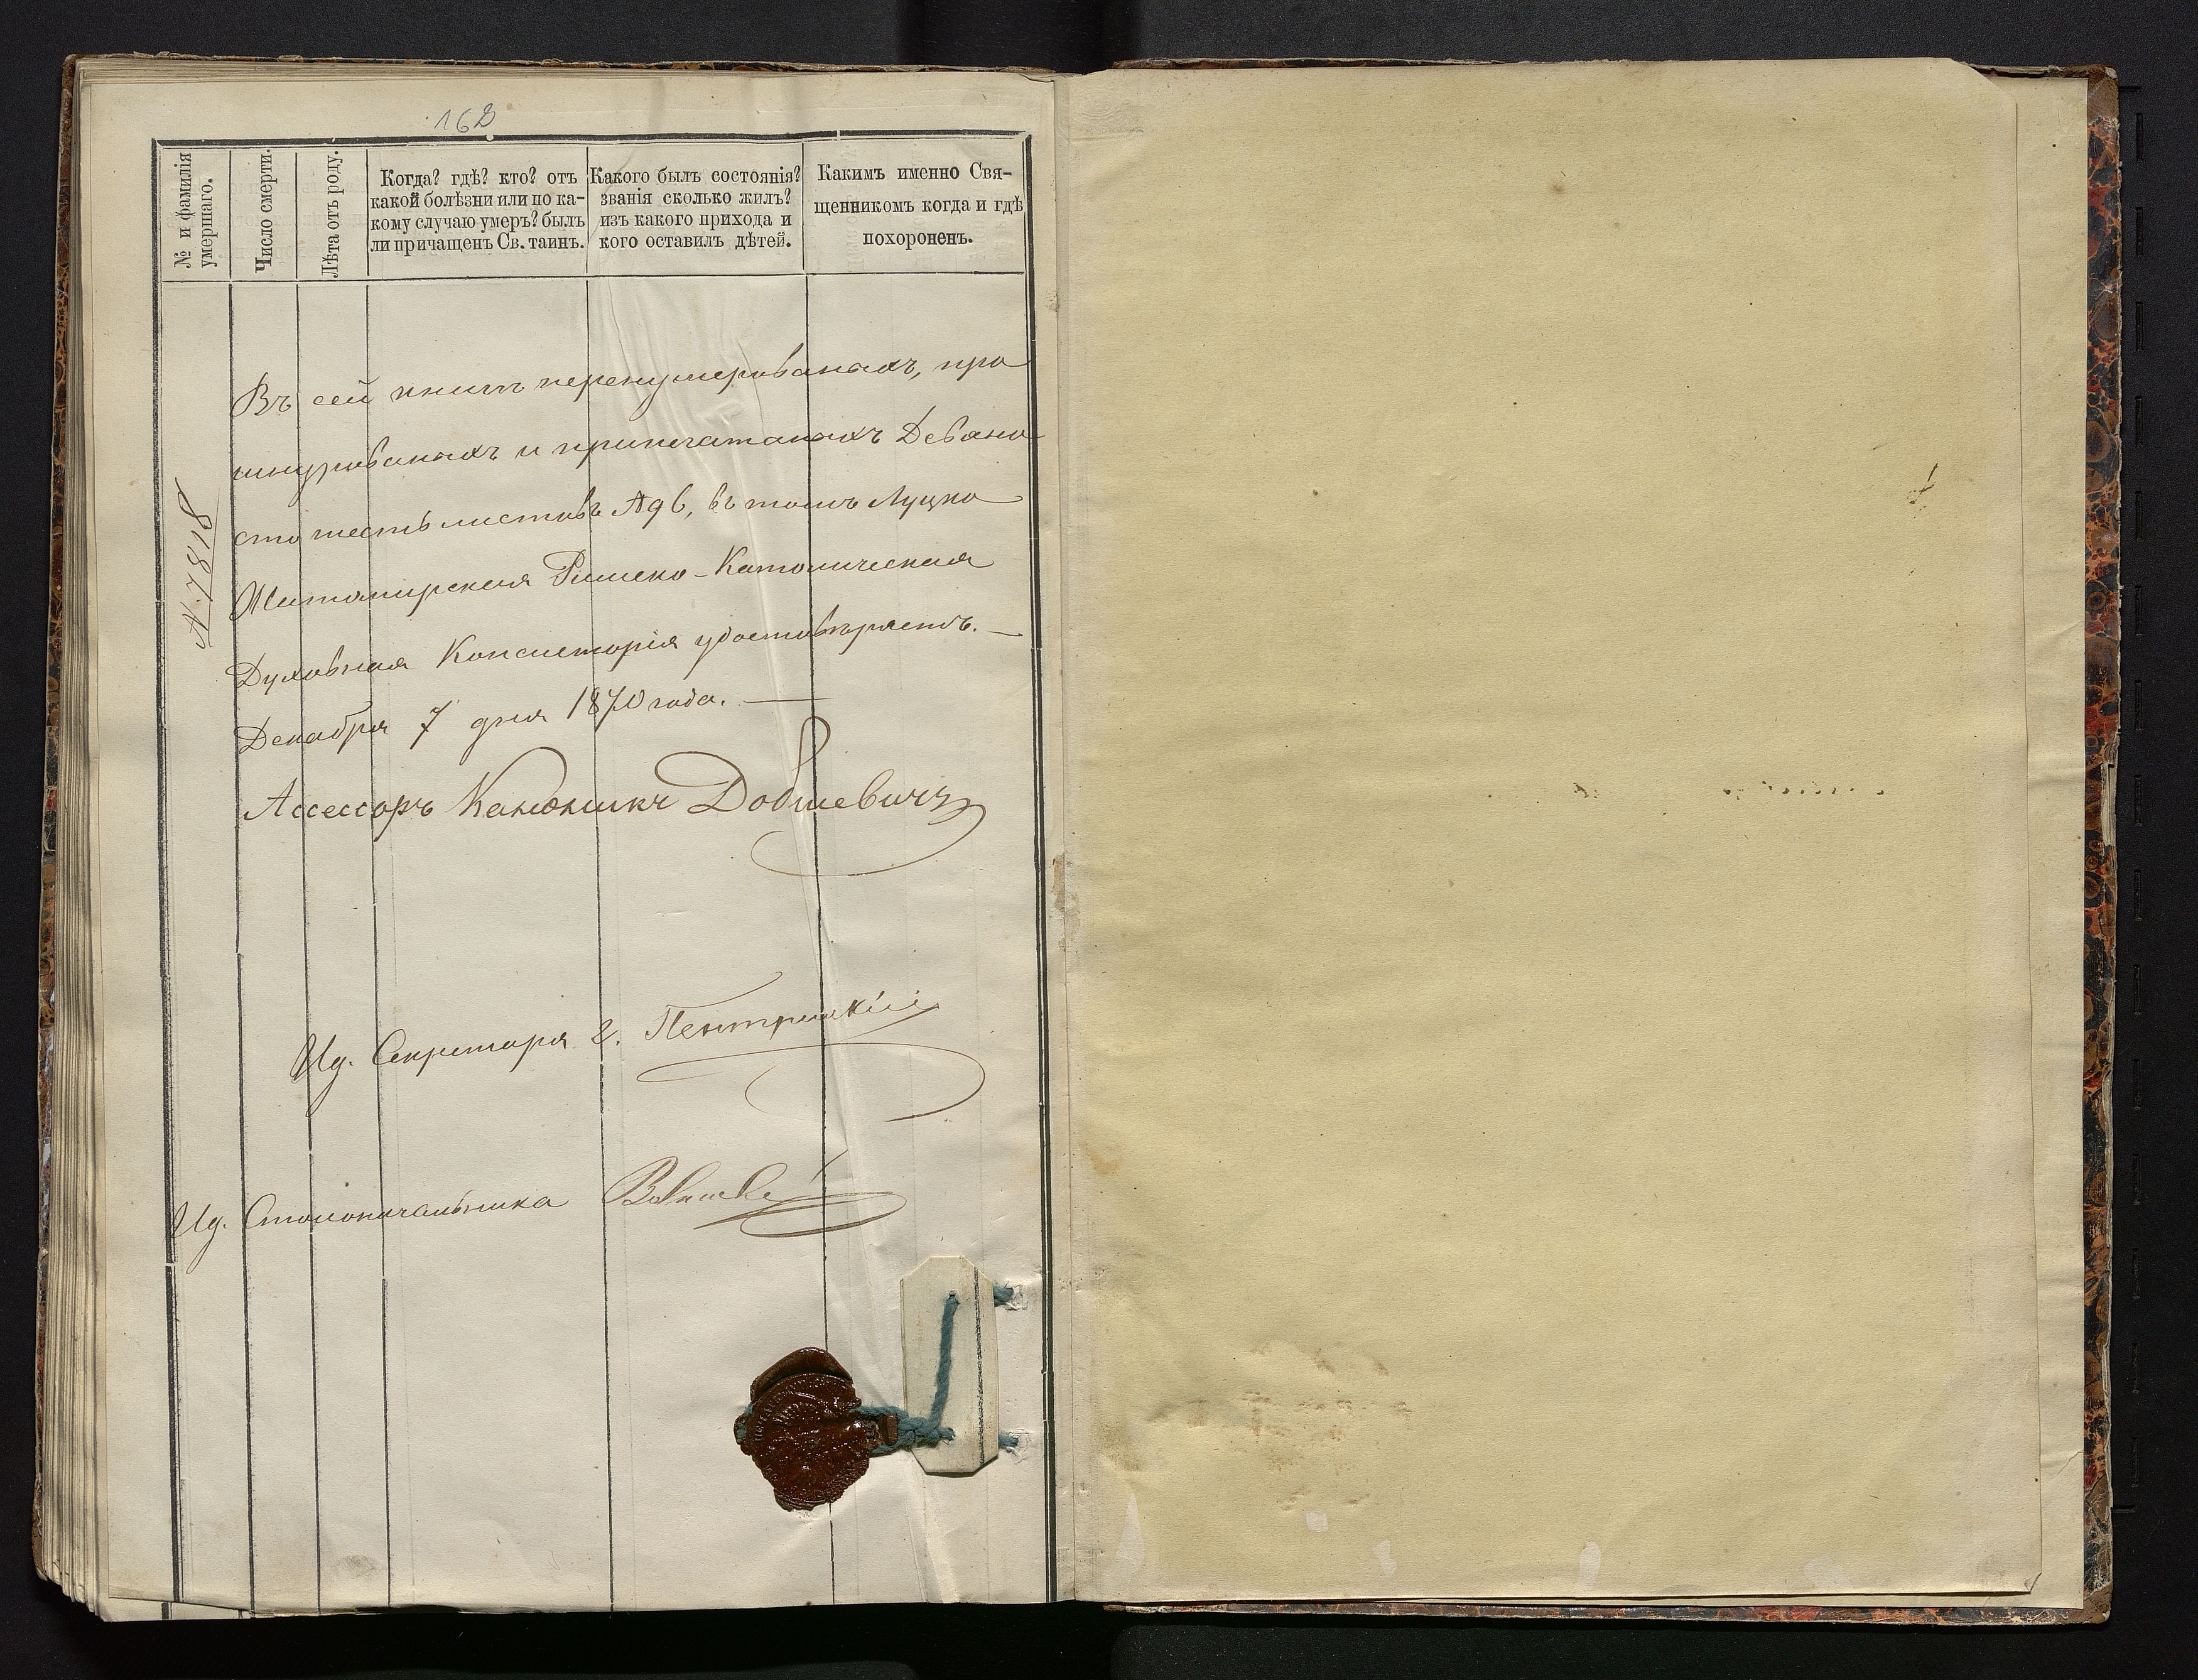 162
№ и фамилія
умершаго.
Число смерти.
Лѣта отъ роду.
Когда? гдѣ? кто? отъ
какой болѣзни или по ка-
кому случаю умеръ? былъ
ли причащенъ Св. таинъ.
Какого былъ состоянія?
званія сколько жилъ?
изъ какого прихода и
кого оставилъ дѣтей.
Какимъ именно Свя-
щенникомъ когда и гдѣ
похороненъ.
№ 7818
Въ сей книгѣ перенумерованахъ, про
шнурованахъ и припечатанахъ Девяно
сто шесть листовъ № 96, въ томъ Луцко
Житомирская Римско-Католическая
Духовная Консисторія удостовѣряетъ. —
Декабря 7 дня 1870 года. —
Ассессоръ Каноникъ Добшевичъ
Ид. Секретаря
Ид. Столоначальника